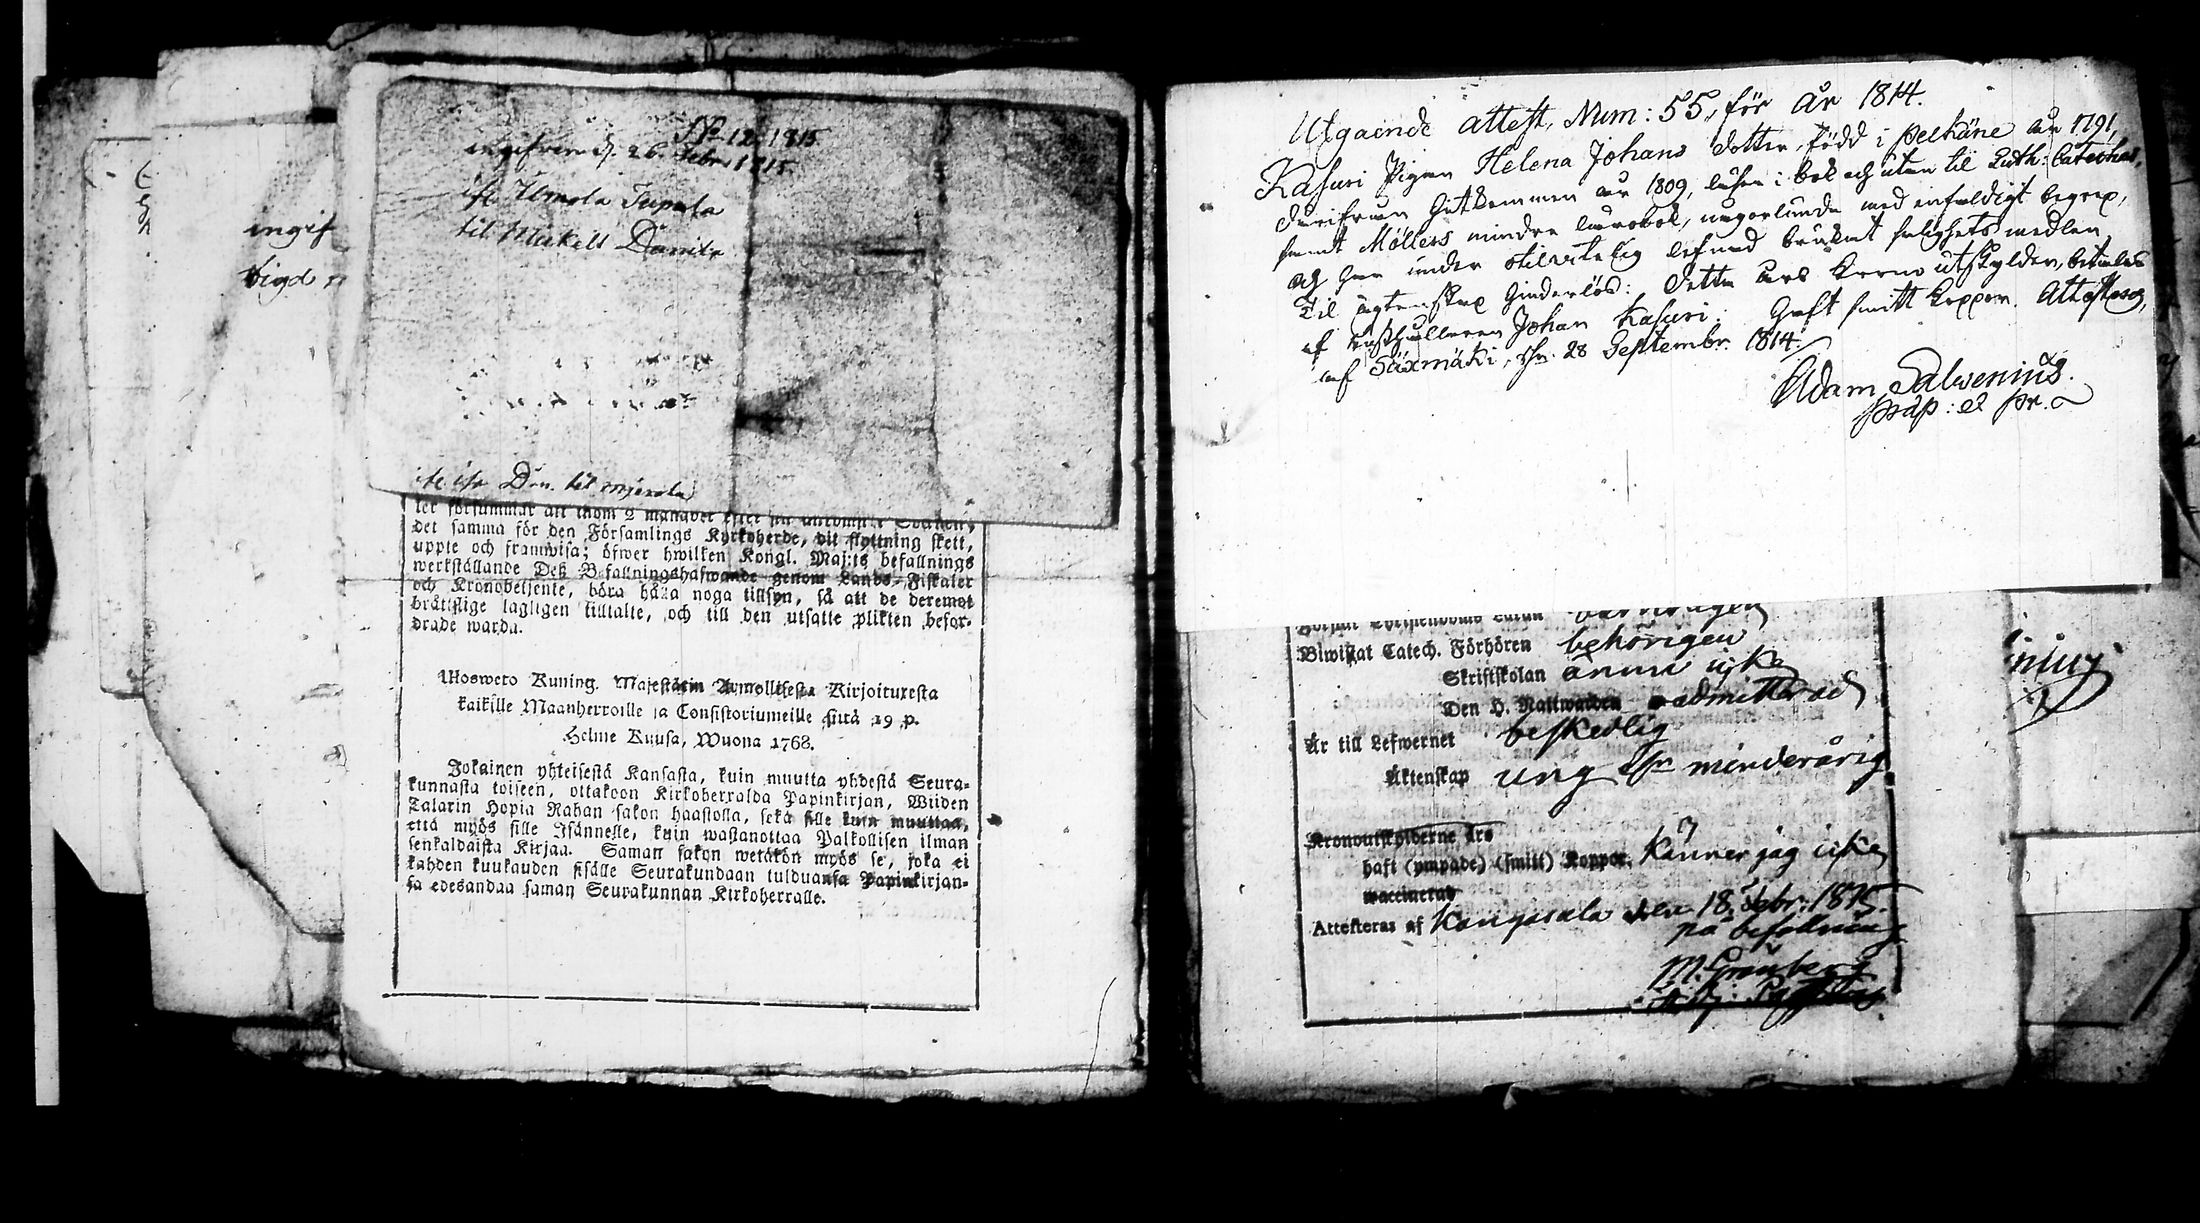 No 12 1815
ingifven d. 26. Febr. 1815.
fr. Uemola Tupala
til Meikell Danila
ingif
bigd
Den. til
det samma för den Församlings Kyrkoherde, dit flyttning skett,
uppte och framwisa; öfwer hwilken Kongl. Maj:ts befallnings
werkställande Deß Befallningshafwande genom Lands-Fiskaler
och Kronobetjente, böra hålla noga tillsyn, så att de deremot
bråttslige lagligen tilltalte, och till den utsatte plikten befor-
drade warda.
Ulosweto Kuning. Majestätin Armollisesta Kirjoituxesta
kaikille Maanherroille ja Consistoriumeille siitä 19 p.
Helme Kuusa, Wuona 1768.
Jokainen yhteisestä Kansasta, kuin muutta yhdestä Seura-
kunnasta toiseen, ottakoon Kirkoherralda Papinkirjan, Wiiden
Talarin Hopia Rahan sakon haastolla, sekä sille kuin muuttaa,
että myös sille Isännelle, kuin wastanottaa Palkollisen ilman
senkaldaista Kirjaa. Saman sakon wetäkön myös se, joka ei
kahden kuukauden sisälle Seurakundaan tulduansa Papinkirjan-
sa edesandaa saman Seurakunnan Kirkoherralle.
Utgående attest, Num: 55, för år 1814.
Kasuri Pigan Helena Johans dotter, född i Pelkäne år 1791,
därifrån hitkommen år 1809, läser i bok och utan til Luth: Cateches,
samt Möllers mindre lärobok, någorlunda med enfaldigt begrep,
och har under oklanderlig lefnad brukat salighets medlen,
Til ägtenskap hinderlös: Detta års krono utskylder, betalas
af Johan Kasuri: Haft smitt koppor. Attesteras,
af Säxmäki, d. 28 Septembr. 1814.
Adam Salvenius.
præp: et Pr.
Biwistat Catech. Förhören behörigen
Skriftskolan ännu icke
Den H. Nattwarden admitterad
Är till Lefwernet beskedlig
Äktenskap ung minderårig
Kronoutskylderne års
haft (ympade) (smitt) Koppor. Känner jag icke
waccinerad
Attesteras af Kangasala den 18 Febr. 1815.
på befallning
M. Grönberg